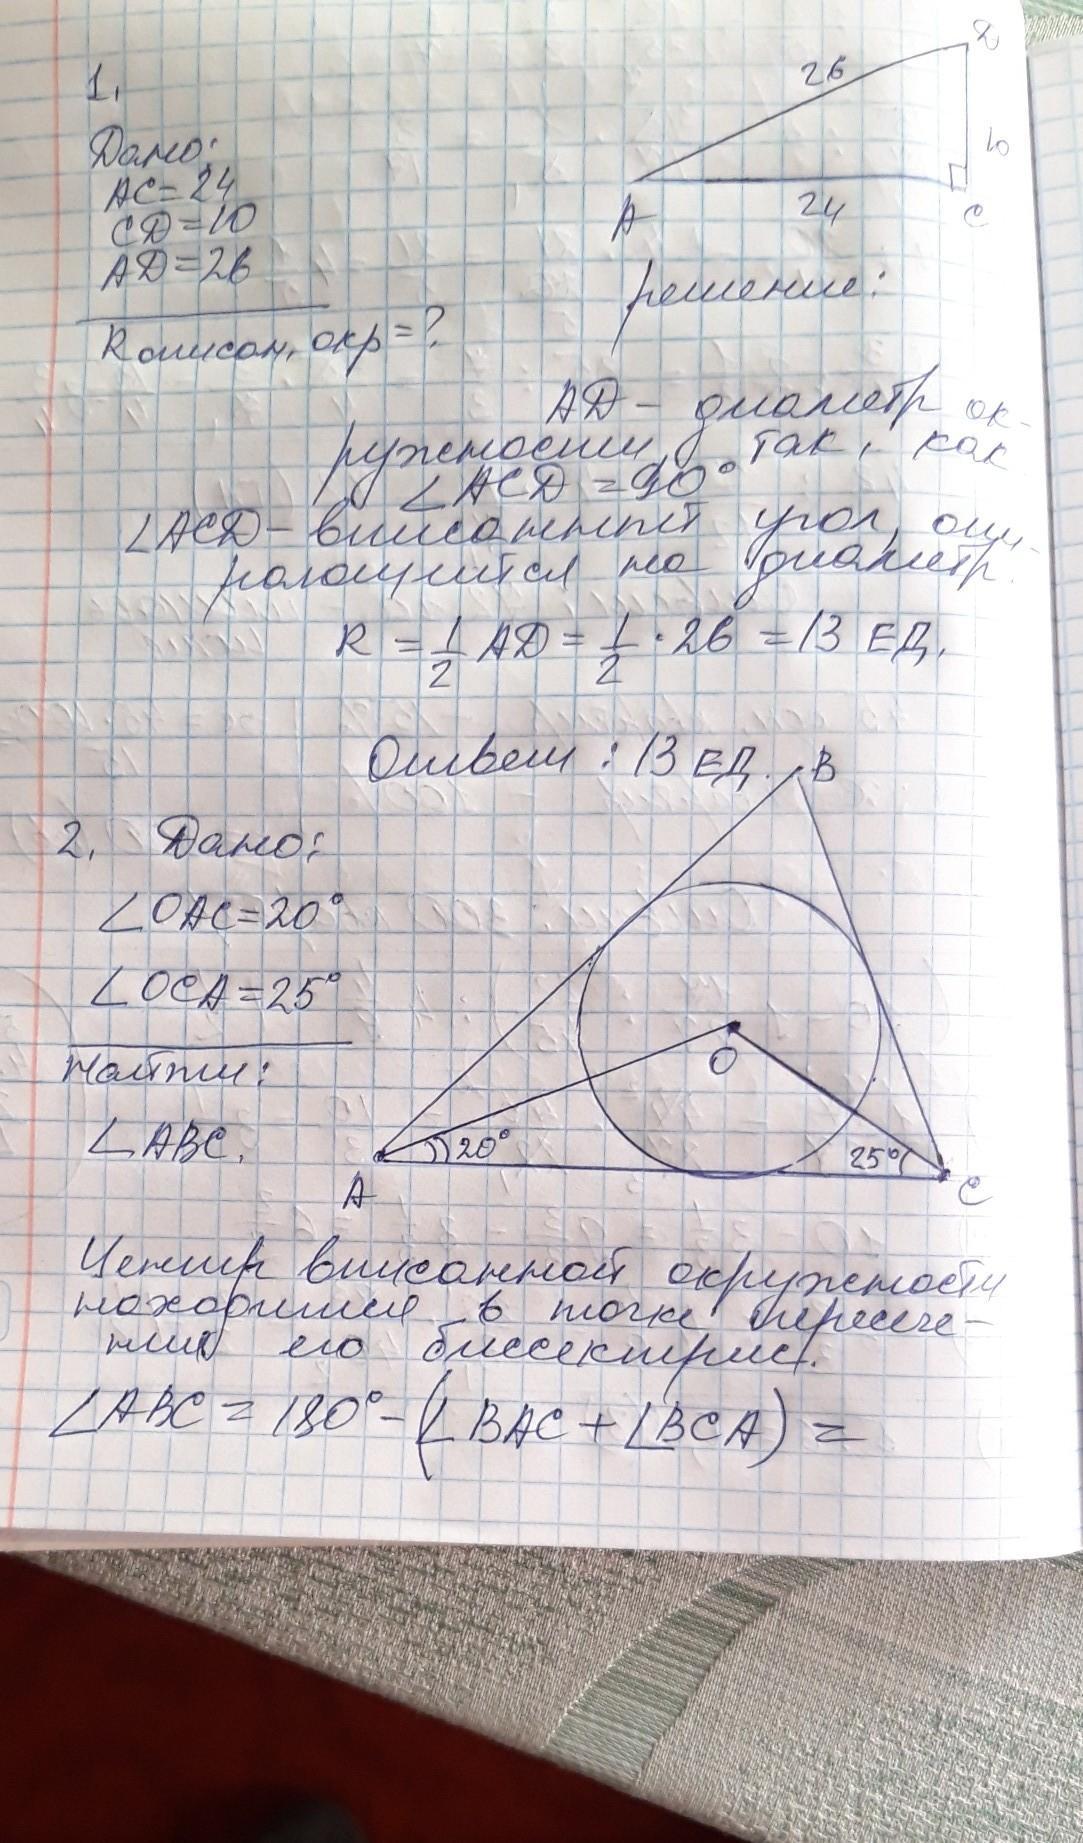 1.
Дано:
AC = 24
CD = 10
AD = 26
R описан. окр = ?
26
D
10
A
24
C
решение:
AD - диаметр ок-
ружности, так, как
∠ACD = 90°
∠ACD - вписанный угол, опи-
рающийся на диаметр.
R = 1/2 AD = 1/2 · 26 = 13 ЕД.
Ответ: 13 ЕД.
B
2. Дано:
∠OAC = 20°
∠OCA = 25°
Найти:
∠ABC.
O
20°
25°
A
C
Центр вписанной окружности
находится в точке пересече-
ния его биссектрис.
∠ABC = 180° - (∠BAC + ∠BCA) =